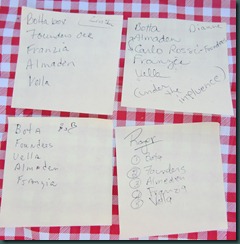 Botta box
Founders
Franzia
Almaden
Vella
Botta Diana
Almaden
Carlo Rossi
Franzie
Vella
(under the influence)
Bota
Founders
Vella
Almaden
Franzia
Roger
① Bota
② Founders
③ Almeden
④ Franzia
⑤ Vella